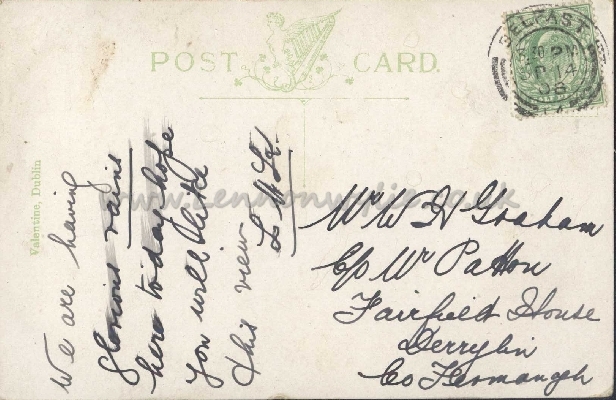 POST CARD.
Valentine, Dublin
BELFAST
PM
14
08
We are having
Glorious rains
here today hope
you will like
this view
Mr W H Graham
C/o Mr Patton
Fairfield House
Derrylin
Co Fermanagh